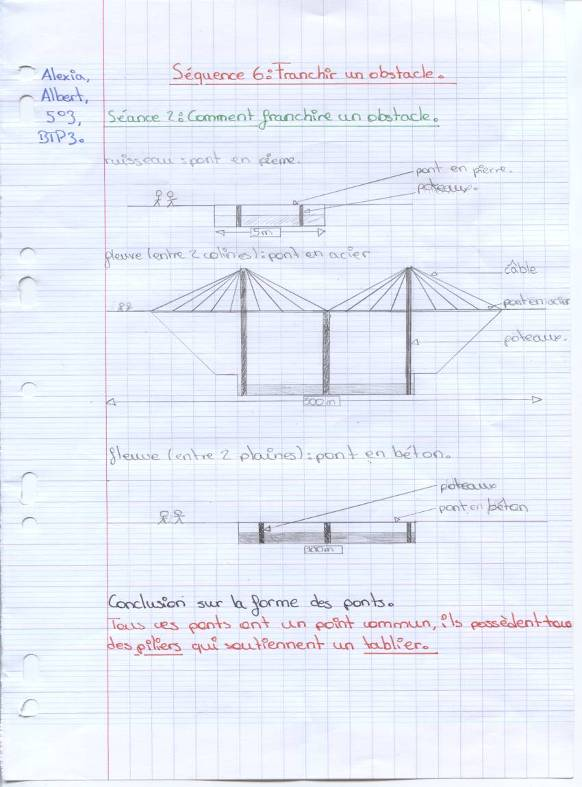 Alexia,
Albert,
5°3,
BTP3.
Séquence 6: Franchir un obstacle.
Séance 2: Comment franchire un obstacle.
ruisseau : pont en pierre.
pont en pierre.
poteaux.
5m
fleuve (entre 2 colines) : pont en acier
câble
pont en acier
poteaux.
300m
fleuve (entre 2 plaines) : pont en béton.
poteaux
pont en béton
Conclusion sur la forme des ponts.
Tous ces ponts ont un point commun, ils possèdent tous
des piliers qui soutiennent un tablier.